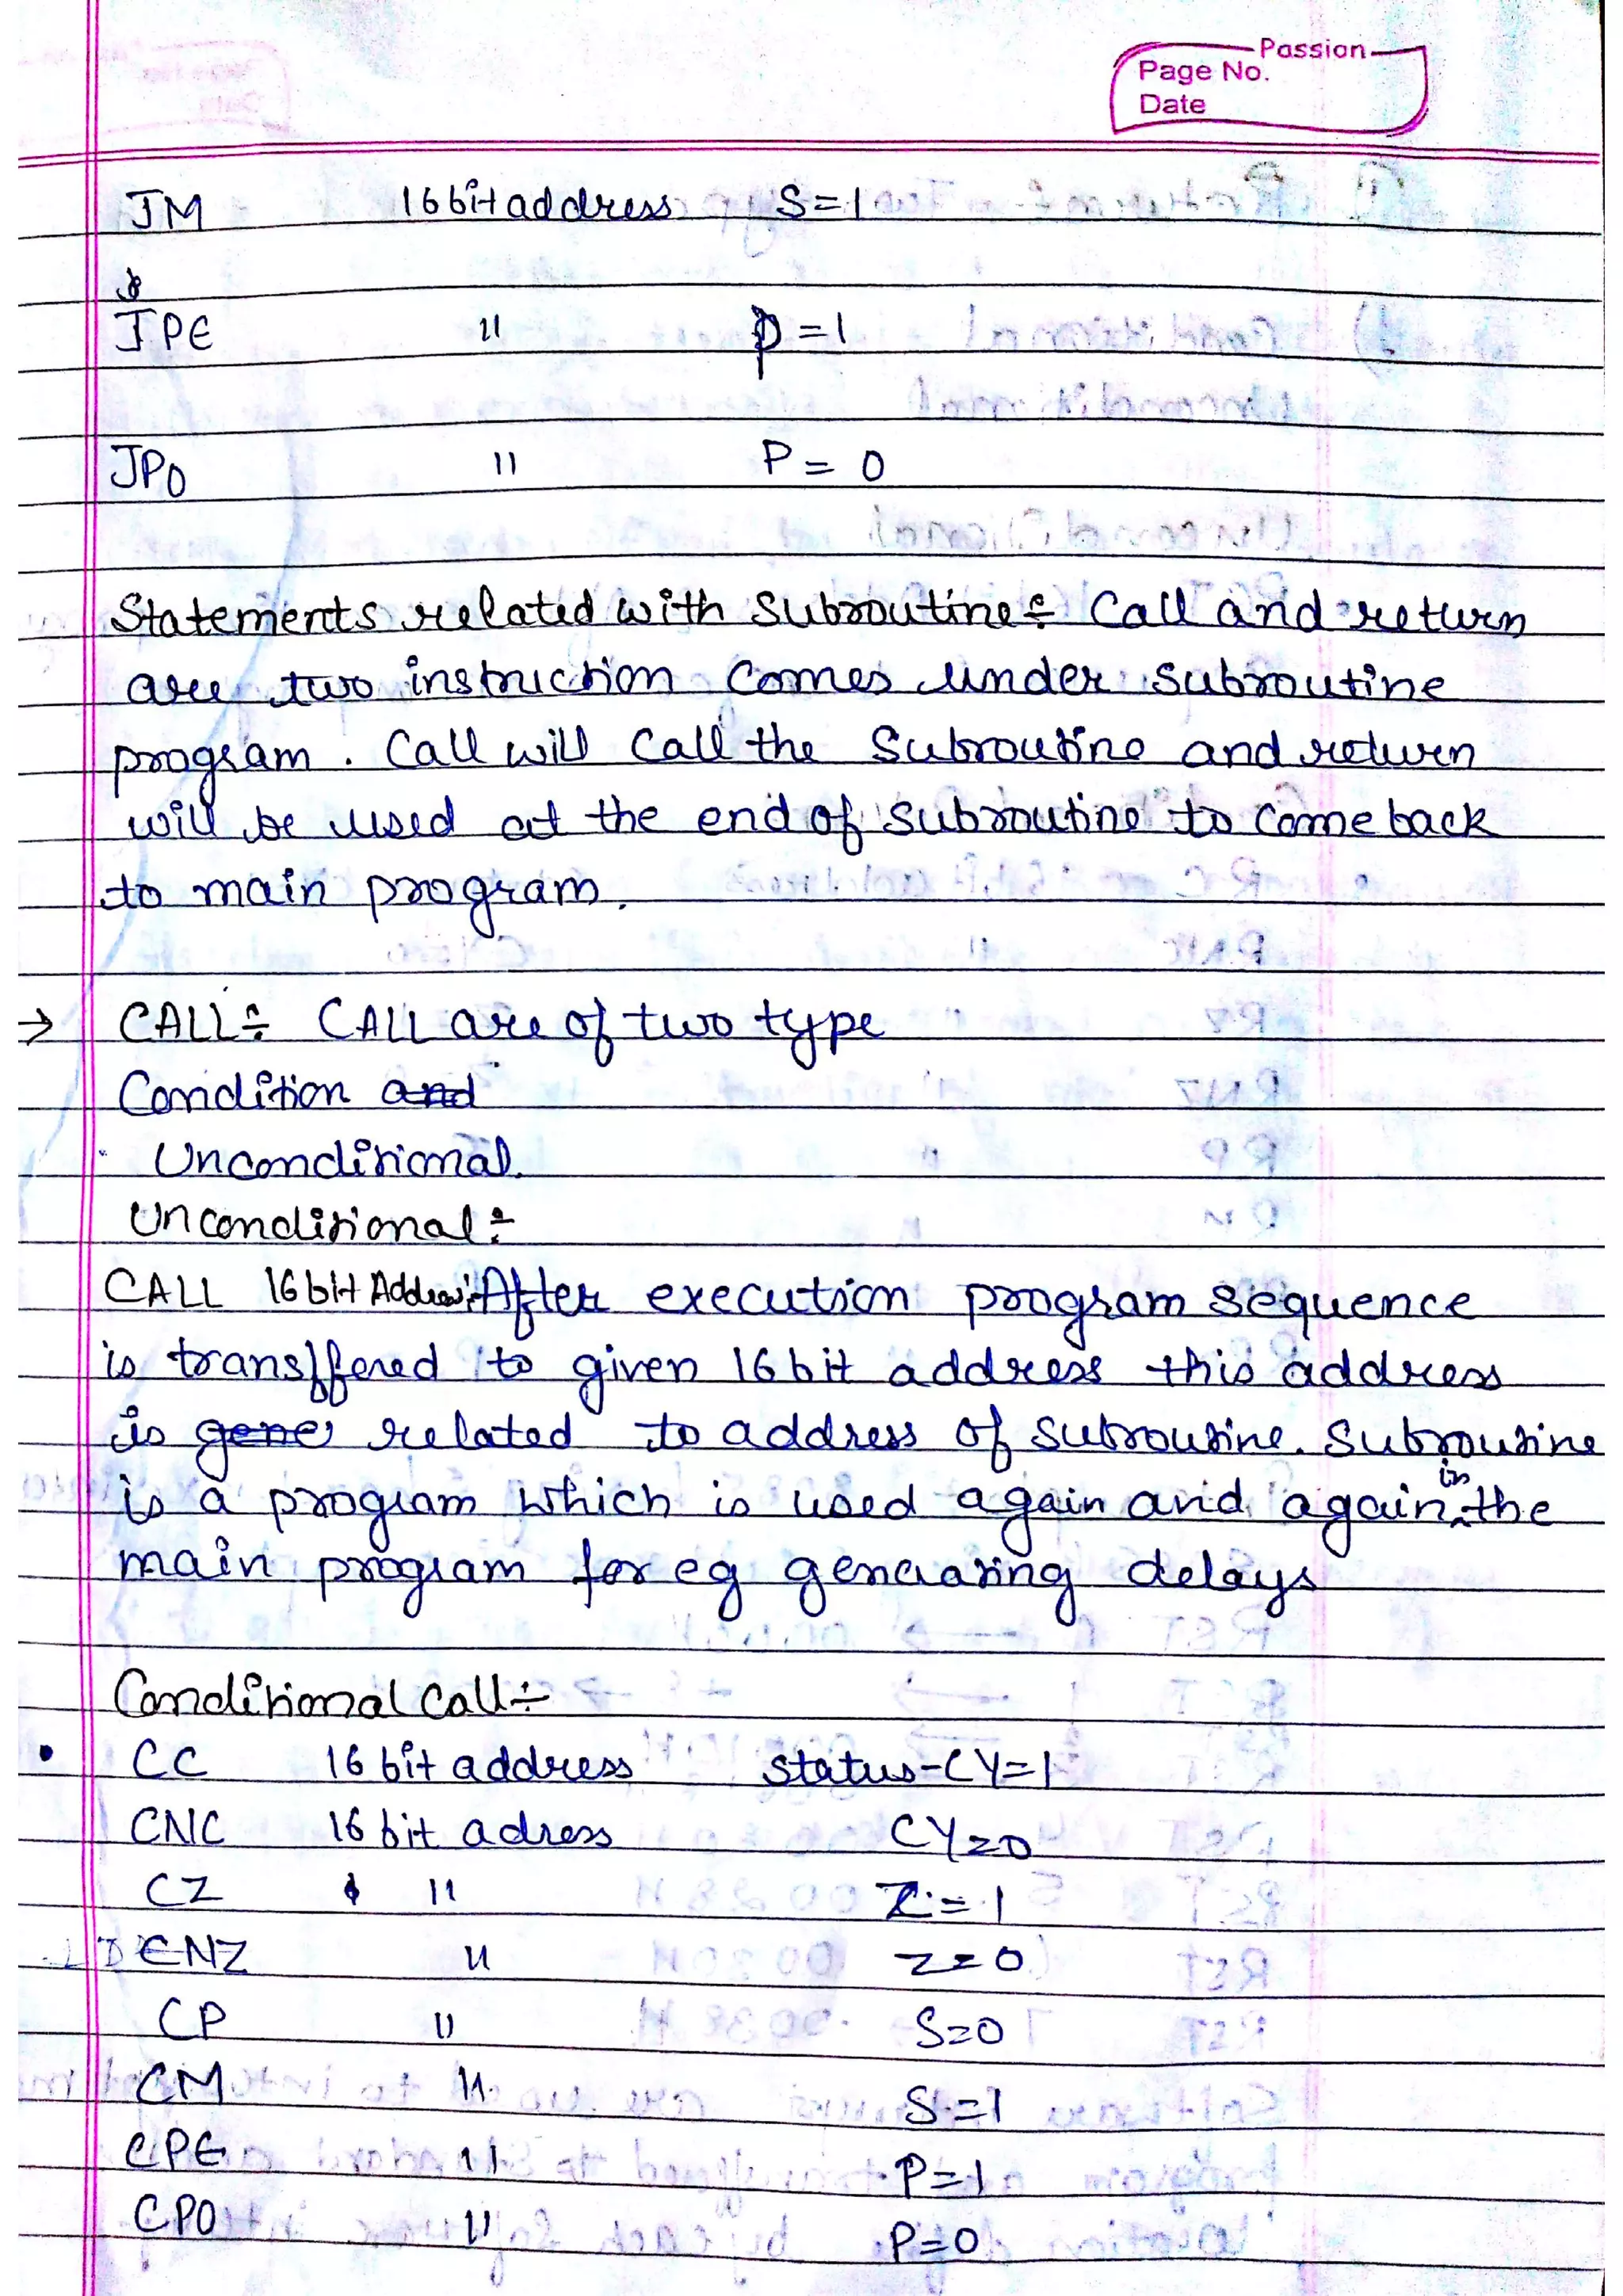 Passion
Page No.
Date
JM 16 bit address S=1
JPE " P=1
JPO " P=0
Statements related with Subroutine÷ Call and return
are two instruction comes under subroutine
program. Call will call the subroutine and return
will be used at the end of subroutine to come back
to main program.
→ CALL÷ CALL are of two type
Condition and
Unconditional.
Unconditional÷
CALL 16 bit Address: After execution program sequence
is transffered to given 16 bit address this address
is gene related to address of subroutine. Subroutine
is a program which is used again and again in the
main program for eg genearating delays
Conditional Call÷
• CC 16 bit address status-CY=1
CNC 16 bit adress CY=0
CZ " Z=1
CNZ " Z=0
CP " S=0
CM " S=1
CPE " P=1
CPO " P=0